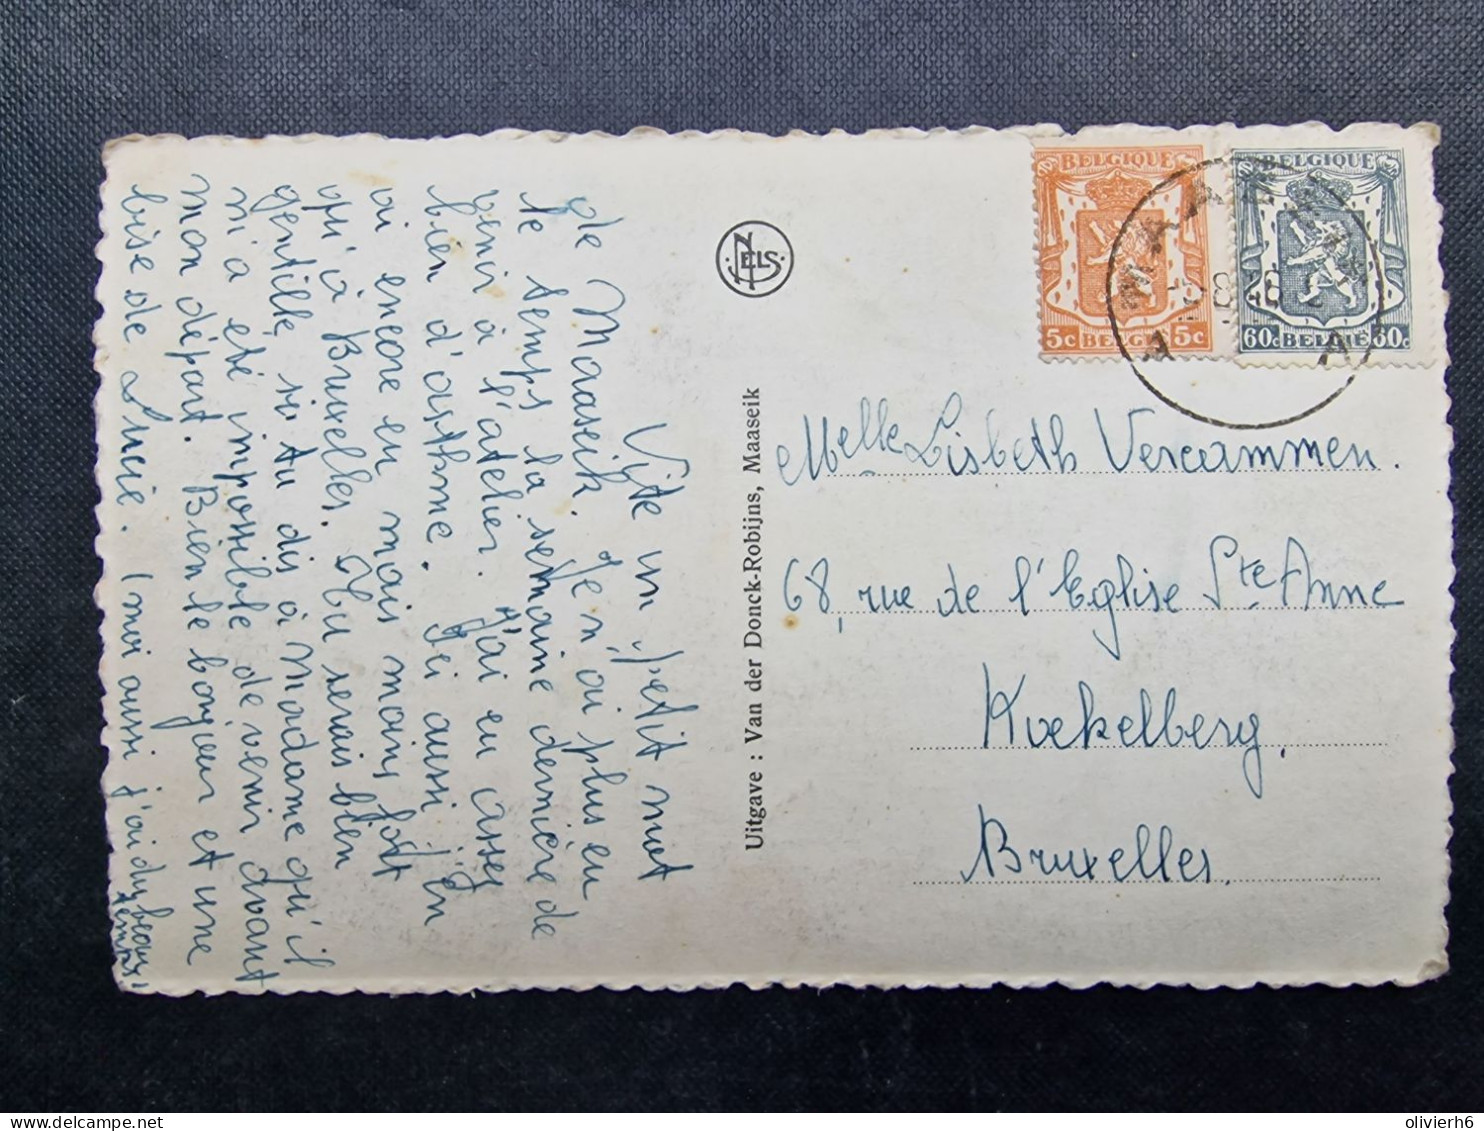 Vite un petit mot
de Maaseik. Je n'ai plus eu
le temps la semaine dernière de
venir à l'atelier. J'ai eu assez
bien d'asthme. Ici aussi j'en
ai encore eu mais moins fort
qu'à Bruxelles. Tu serais bien
gentille si tu dis à madame qu'il
m'a été impossible de venir avant
mon départ. Bien le bonjour et une
bise de Lucie. (moi aussi j'ai du beau
temps)
NELS
Uitgave : Van der Donck-Robijns, Maaseik
BELGIQUE
5c BELGIË 5c
BELGIQUE
60c BELGIË 60c
MAASEIK
A
Melle Lisbeth Vercammen.
68, rue de l'Eglise Ste Anne
Koekelberg.
Bruxelles.
olivierh6